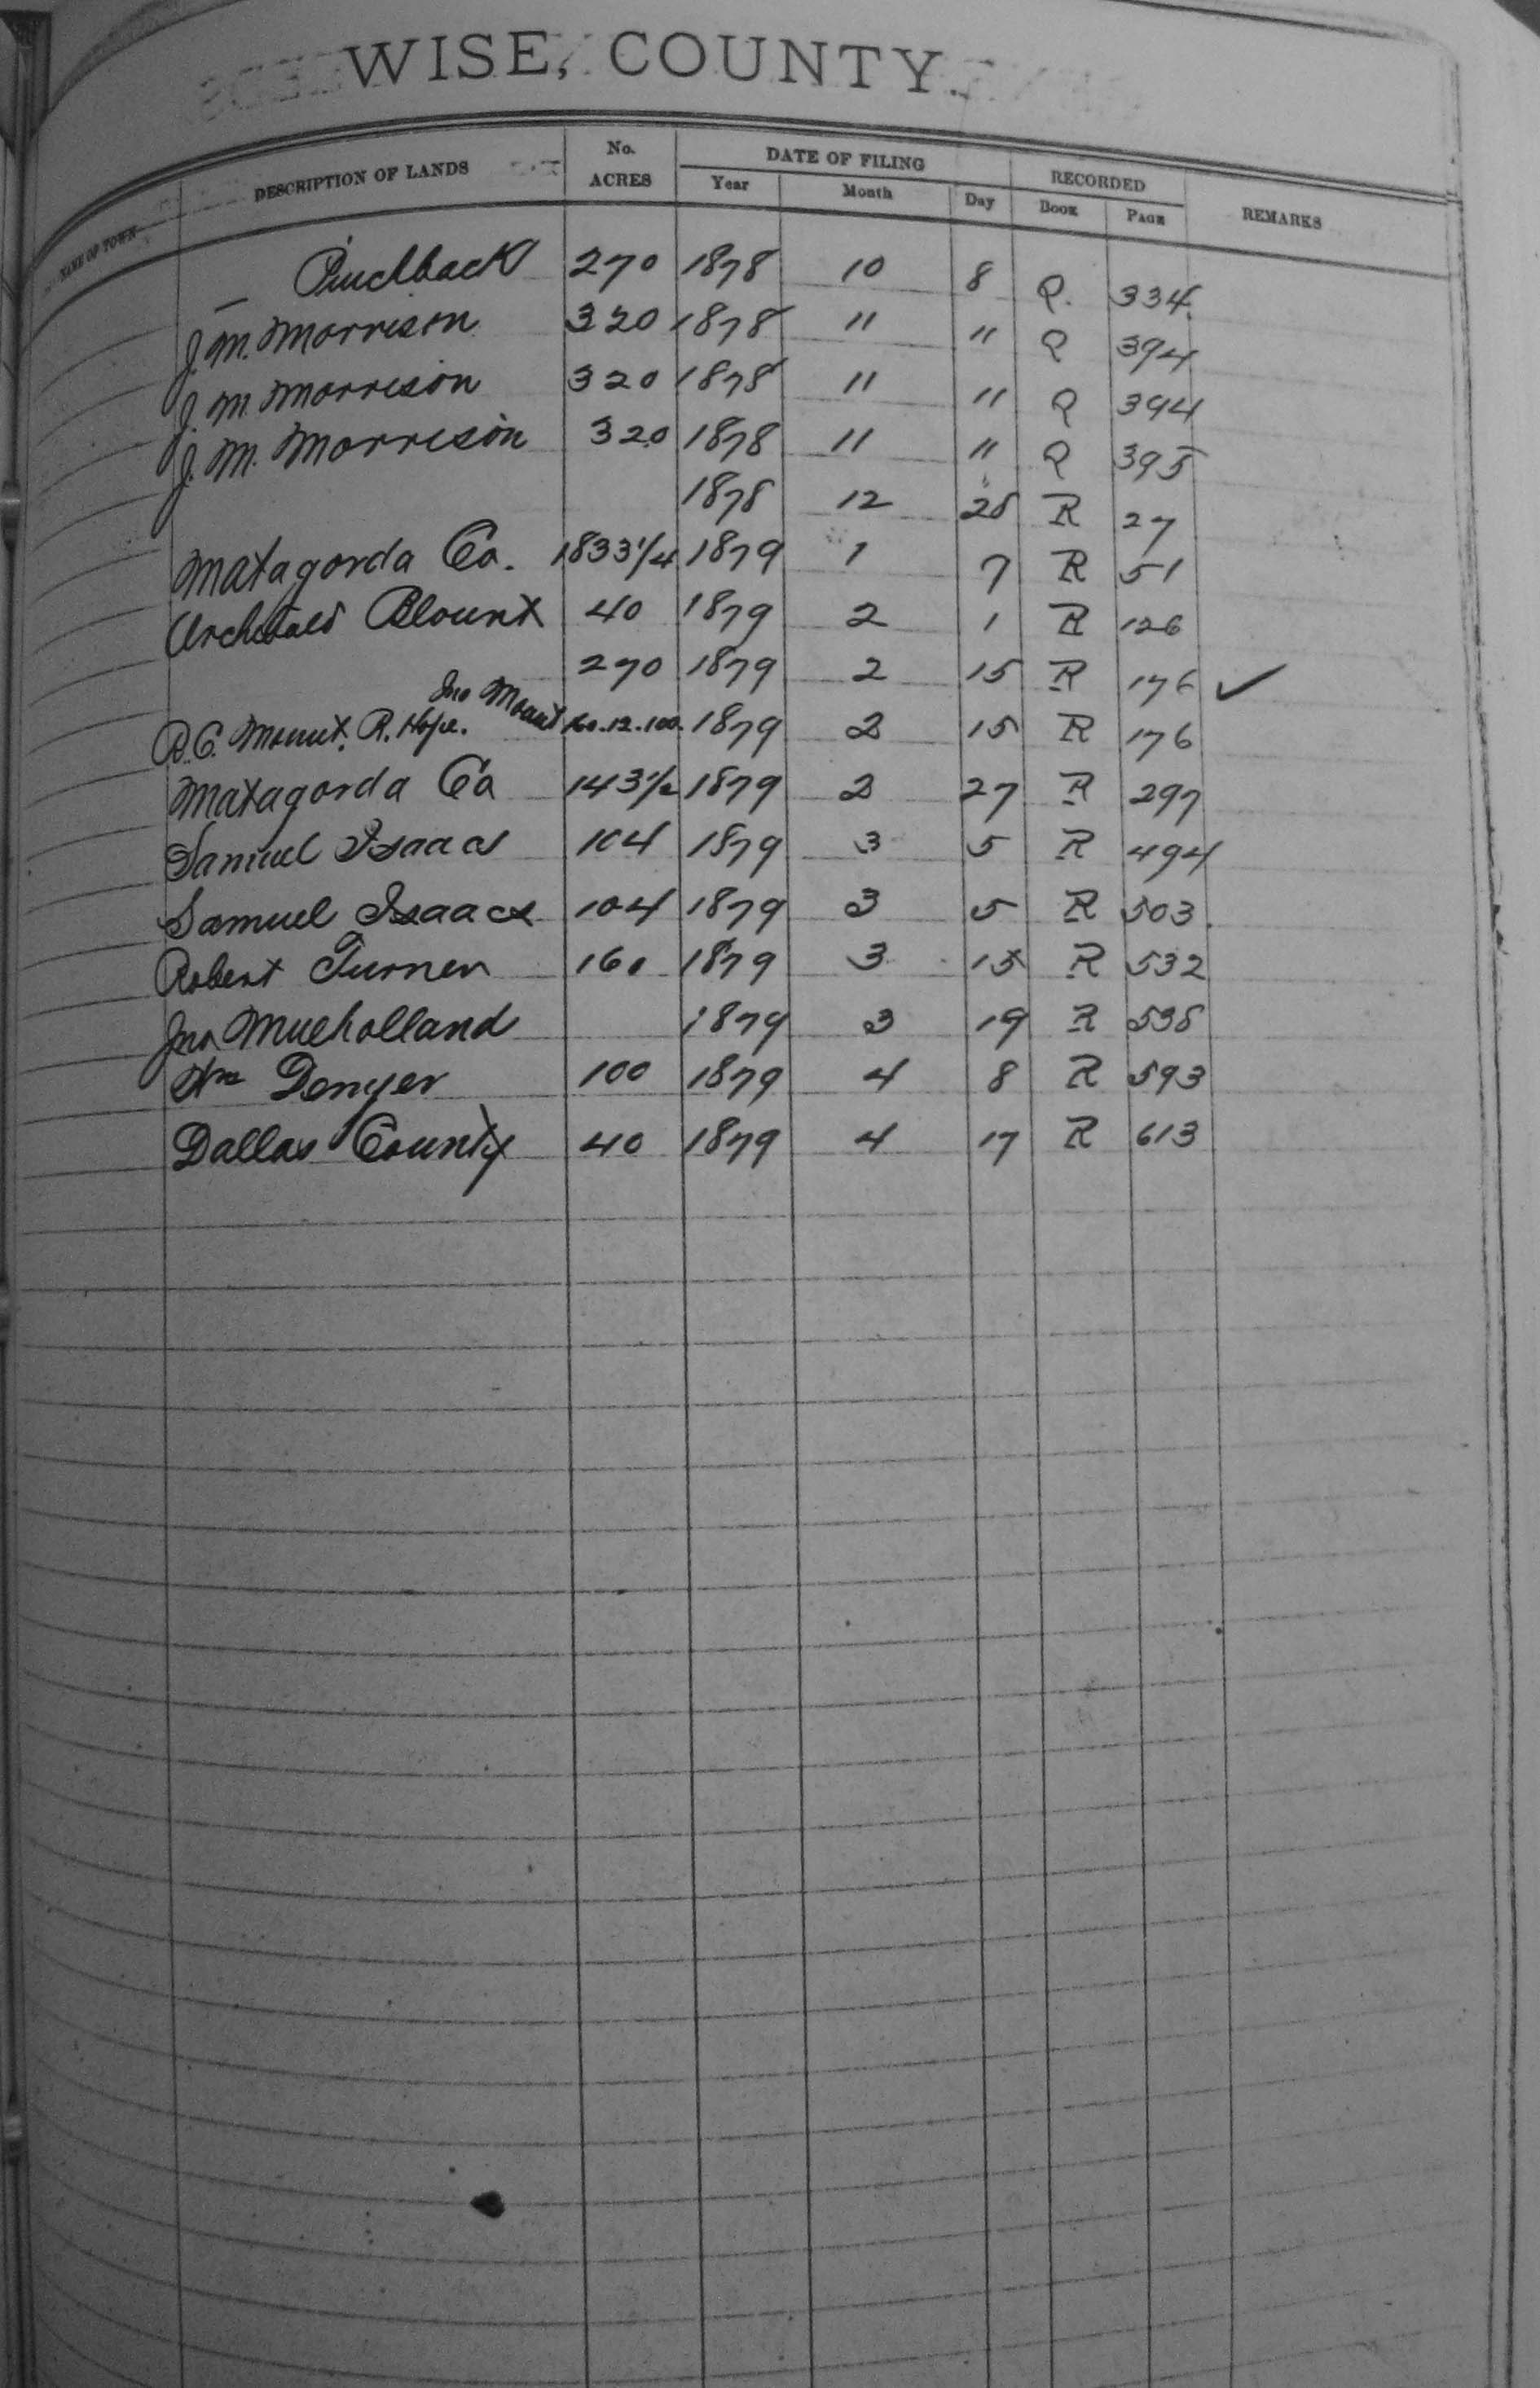 WISE, COUNTY.
NAME OF TOWN DESCRIPTION OF LANDS No. ACRES DATE OF FILING Year Month Day RECORDED Book Page REMARKS
— Pinchback 270 1878 10 8 Q. 334.
J. M. Morrison 320 1878 11 " Q 394
J. M. Morrison 320 1878 11 " Q 394
J. M. Morrison 320 1878 11 " Q 395
1878 12 28 R 27
Matagorda Co. 1833 1/4 1879 1 7 R 51
Archibald Blount 40 1879 2 1 R 126
270 1879 2 15 R 176 ✓
B. C. Mount. R. Hope. Jno Mount 160.12.100. 1879 2 15 R 176
Matagorda Co 143 1/2 1879 2 27 R 297
Samuel Isaacs 104 1879 3 5 R 494
Samuel Isaacs 104 1879 3 5 R 503.
Robert Turner 160 1879 3 15 R 532
Jno Mulholland 1879 3 19 R 538
Wm Denyer 100 1879 4 8 R 593
Dallas County 40 1879 4 17 R 613